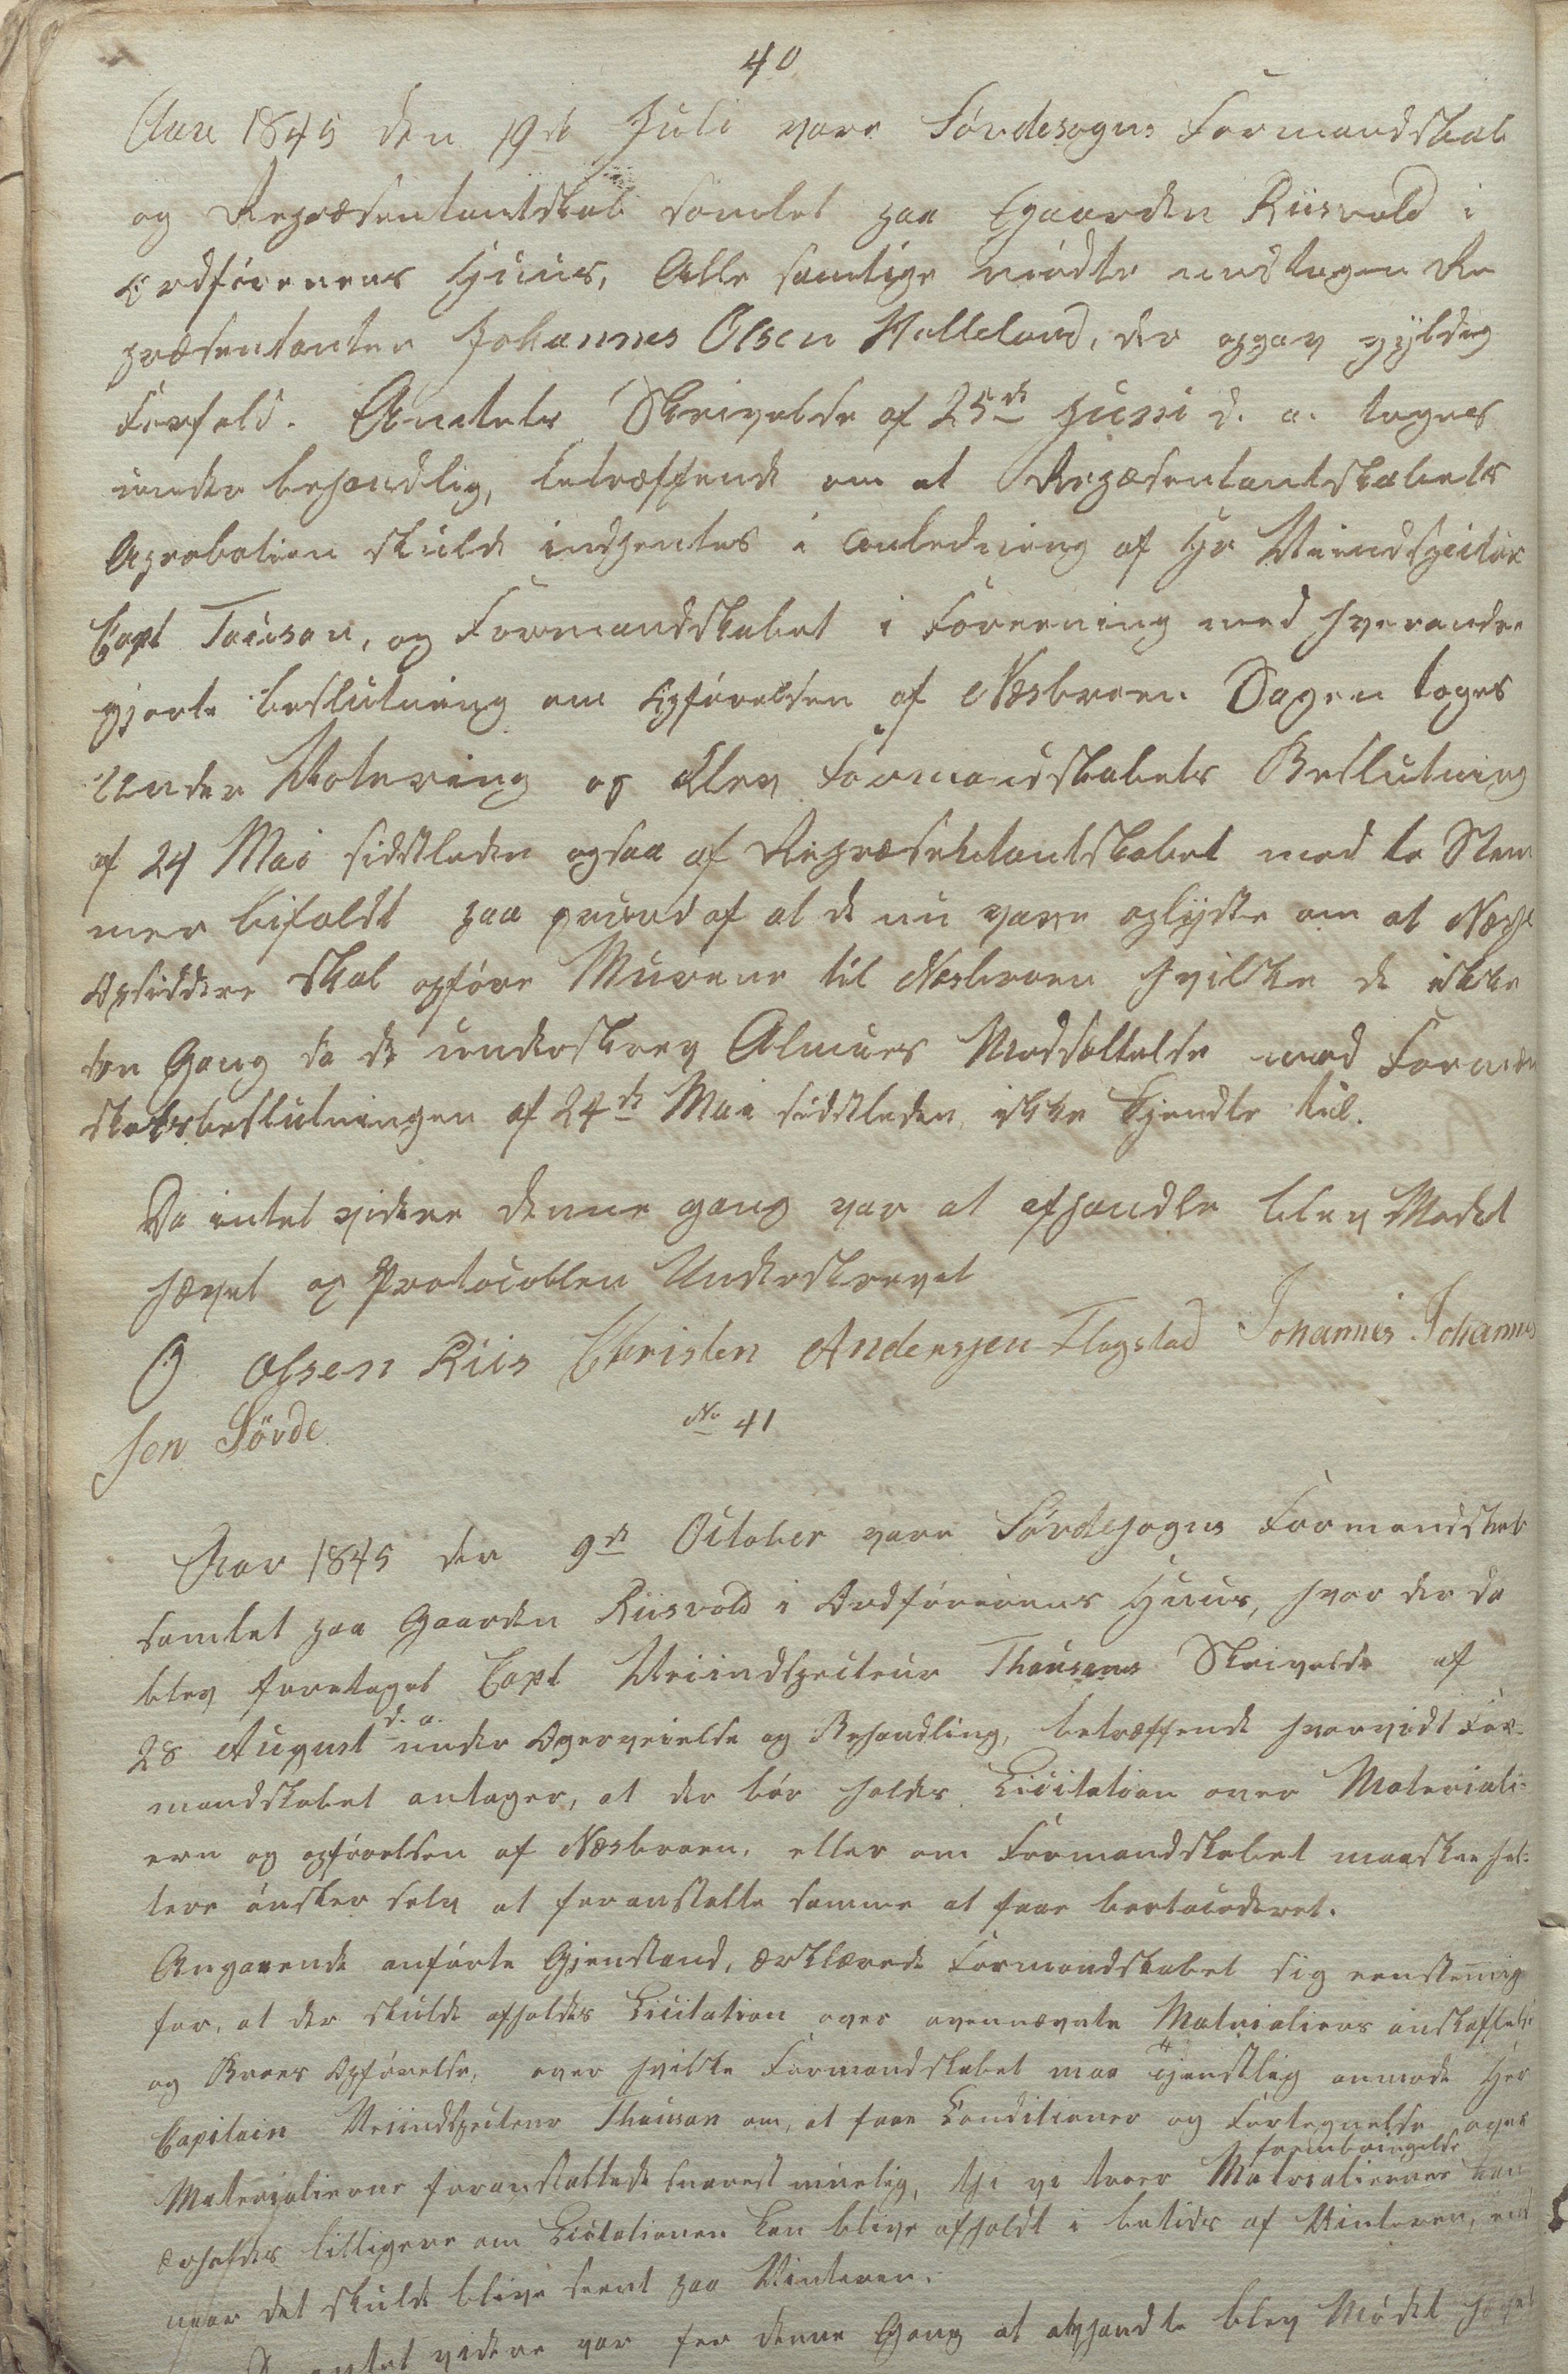 40
Aar 1845 den 19de Juli vare Sørdesogns Formandskab
og Repræsentantskab samlet paa Gaarden Riisvold i
Ordførerens Huus, Alle samtlige mødte undtagen Re
præsentanten Johannes Olsen Halleland, der opgav gyldig
Forfald. Amtets Skrivelse af 25de Juni d. a. toges
under behandlig, betræffende om at Repræsentantskabets
Aprobation skulde indhentes i Anledning af Hr Veiindspecteur
Capt Tauson, og Formandskabet i Forening med hverandre
gjorte beslutning om Opførelsen af Næsbroen. Sagen toges
Under Votering og blev Formandskabets Beslutning
af 24 Mai sidstleden ogsaa af Repræsentantskabet med to Stem
mer bifaldt paa grund af at de nu vare oplyste om at
Opsiddere skal opføre Murene til Næsbroen hvilke de ikke
den Gang da de underskrev Almues Modsættelse mod Formand
skabsbeslutningen af 24de Mai sidstleden ikke kjendte til.
Da intet videre denne gang var at afhandle blev Modet
hævet og Protocollen Underskrevet
O Olsen Riis Christen Andersjen Flagstad Johannis Johannis
sen Sörde
No 41
Aar 1845 den 9de October vare Sørdesogns Formandskab
samlet paa Gaarden Riisvold i Ordførerens Huus, hvor der da
blev foretaget Capt Veiindspecteur Thausens Skrivelse af
28 August d. a. under Overveielse og Behandling, betræffende hvorvidt For-
mandskabet antager, at der bør holdes Licitation over Materiali-
ern og opførelsen af Næsbroen, eller om Formandskabet maaskee hel-
lere ønsker selv at foranstalte samme at faae bortacoderet.
Angaaende anførte Gjenstand, erklærede Formandskabet sig eenstemig
for, at der skulde afholdes Licitation over ovennævnte Materialiers anskaffelse
og Broes Opførelse, over hvilke Formandskabet maa tjenstlig anmode Her
Capitain Veiindspecteur Thauson om, at faae Conditioner og Fortegnelse over
Materialierne foranstaltede snarest muelig, thi vi troer Materialiernes frembringelse kan
erholdes billigere om Licitationen kan blive afholdt i betids af Vinteren, end
naar det skulde blive seent paa Vinteren.
Da intet videre var for denne Gang at afhandle blev Mødet hævet